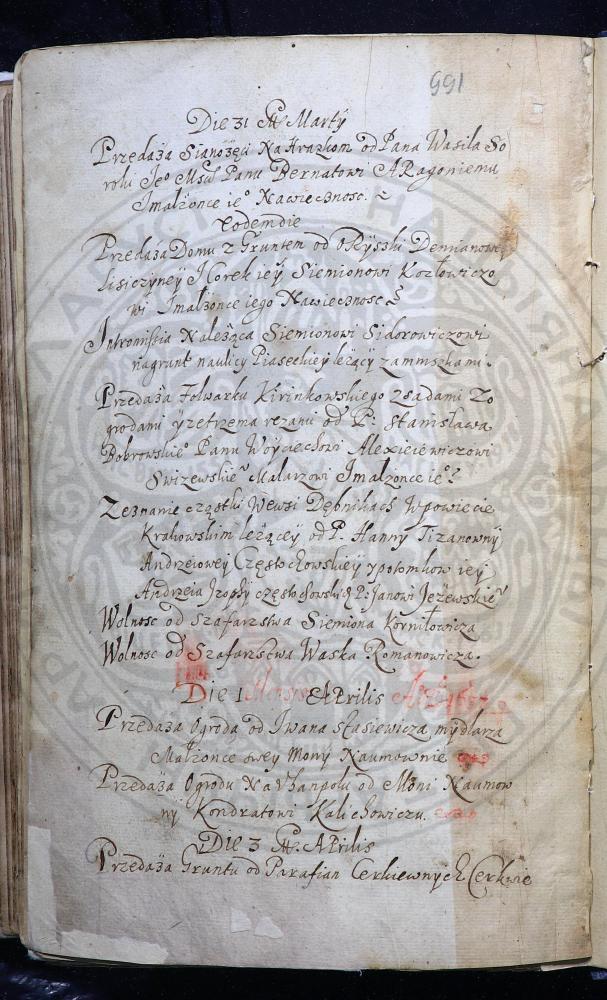 991
Die 31 M. Marty
Przedaża Sianożęci Na Hrazkom od Pana Wasila So
roki Jeo Mści Panu Bernatowi ARagoniemu
Imałżonce ieo Nawiecznosc.
Eodem die
Przedaża Domu z Gruntem od ORyszki Demianowey
Lisiczyney JCorek iey Siemionowi Kozłowiczo
wi Jmalzonce iego Nawiecznosc
Intromissia Naleząca Siemionowi Sidorowiczowi
nagrunt naulicy Piaseckiey leżący zammszkami.
Przedaża Folwarku Kirinkowskiego zsadami Zo
grodami yzetrzema rezami od P: Stanisława
Bobrowskieo Panu Woyciechowi Alexieiewiczowi
Swizewskieo Malarzowi Jmalzonce ieo
Zeznanie cząstki Wewsi Dębnikach Wpowiecie
Krakowskim leżącey od P. Hanny Tizanowny
Andrzeiowey Częstochowskiey ypotomkow iey
Andrzeia Jzophy częstochowskich P: Janowi Jeżewskieo
Wolnosc od Szafarstwa Siemiona Korniłowicza
Wolnosc od Szafarstwa Waska Romanowicza.
Die 1 Aprilis
Przedaża Ogroda od Jwana Stasiewicza mydlarza
Malzonce swey Mony Naumownie
Przedaża Ogrodu Na Vhanpolu od Moni Naumow
ny Kondratowi Kalichowiczu.
Die 3 M. Aprilis
Przedaża Gruntu od Parafian Cerkiewnych Cerkwie